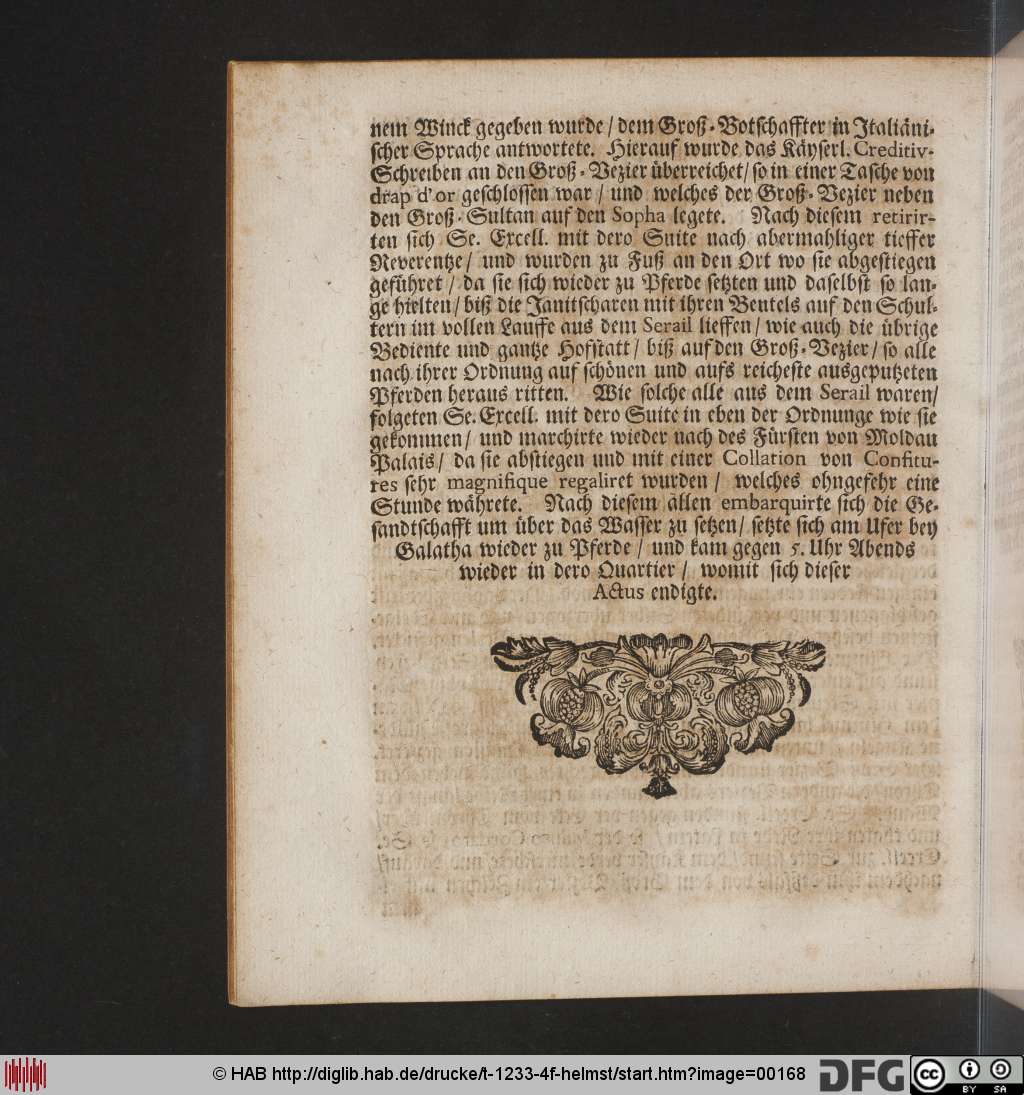 nem Winck gegeben wurde / dem Groß-Botschaffter in Italiäni-
scher Sprache antwortete. Hierauf wurde das Käyserl. Creditiv-
Schreiben an den Groß-Vezier überreichet / so in einer Tasche von
drap d'or geschlossen war / und welches der Groß-Vezier neben
den Groß-Sultan auf den Sopha legete. Nach diesem retirir-
ten sich Se. Excell. mit dero Suite nach abermahliger tieffer
Reverentze / und wurden zu Fuß an den Ort wo sie abgestiegen
geführet / da sie sich wieder zu Pferde setzten und daselbst so lan-
ge hielten / biß die Janitscharen mit ihren Beutels auf den Schul-
tern im vollen Lauffe aus dem Serail lieffen / wie auch die übrige
Bediente und gantze Hofstatt / biß auf den Groß-Vezier / so alle
nach ihrer Ordnung auf schönen und aufs reicheste ausgeputzeten
Pferden heraus ritten. Wie solche alle aus dem Serail waren /
folgeten Se. Excell. mit dero Suite in eben der Ordnunge wie sie
gekommen / und marchirte wieder nach des Fürsten von Moldau
Palais / da sie abstiegen und mit einer Collation von Confitu-
res sehr magnifique regaliret wurden / welches ohngefehr eine
Stunde währete. Nach diesem allen embarquirte sich die Ge-
sandtschafft um über das Wasser zu setzen / setzte sich am Ufer bey
Galatha wieder zu Pferde / und kam gegen 5. Uhr Abends
wieder in dero Quartier / womit sich dieser
Actus endigte.
© HAB http://diglib.hab.de/drucke/t-1233-4f-helmst/start.htm?image=00168
DFG
cc
BY SA